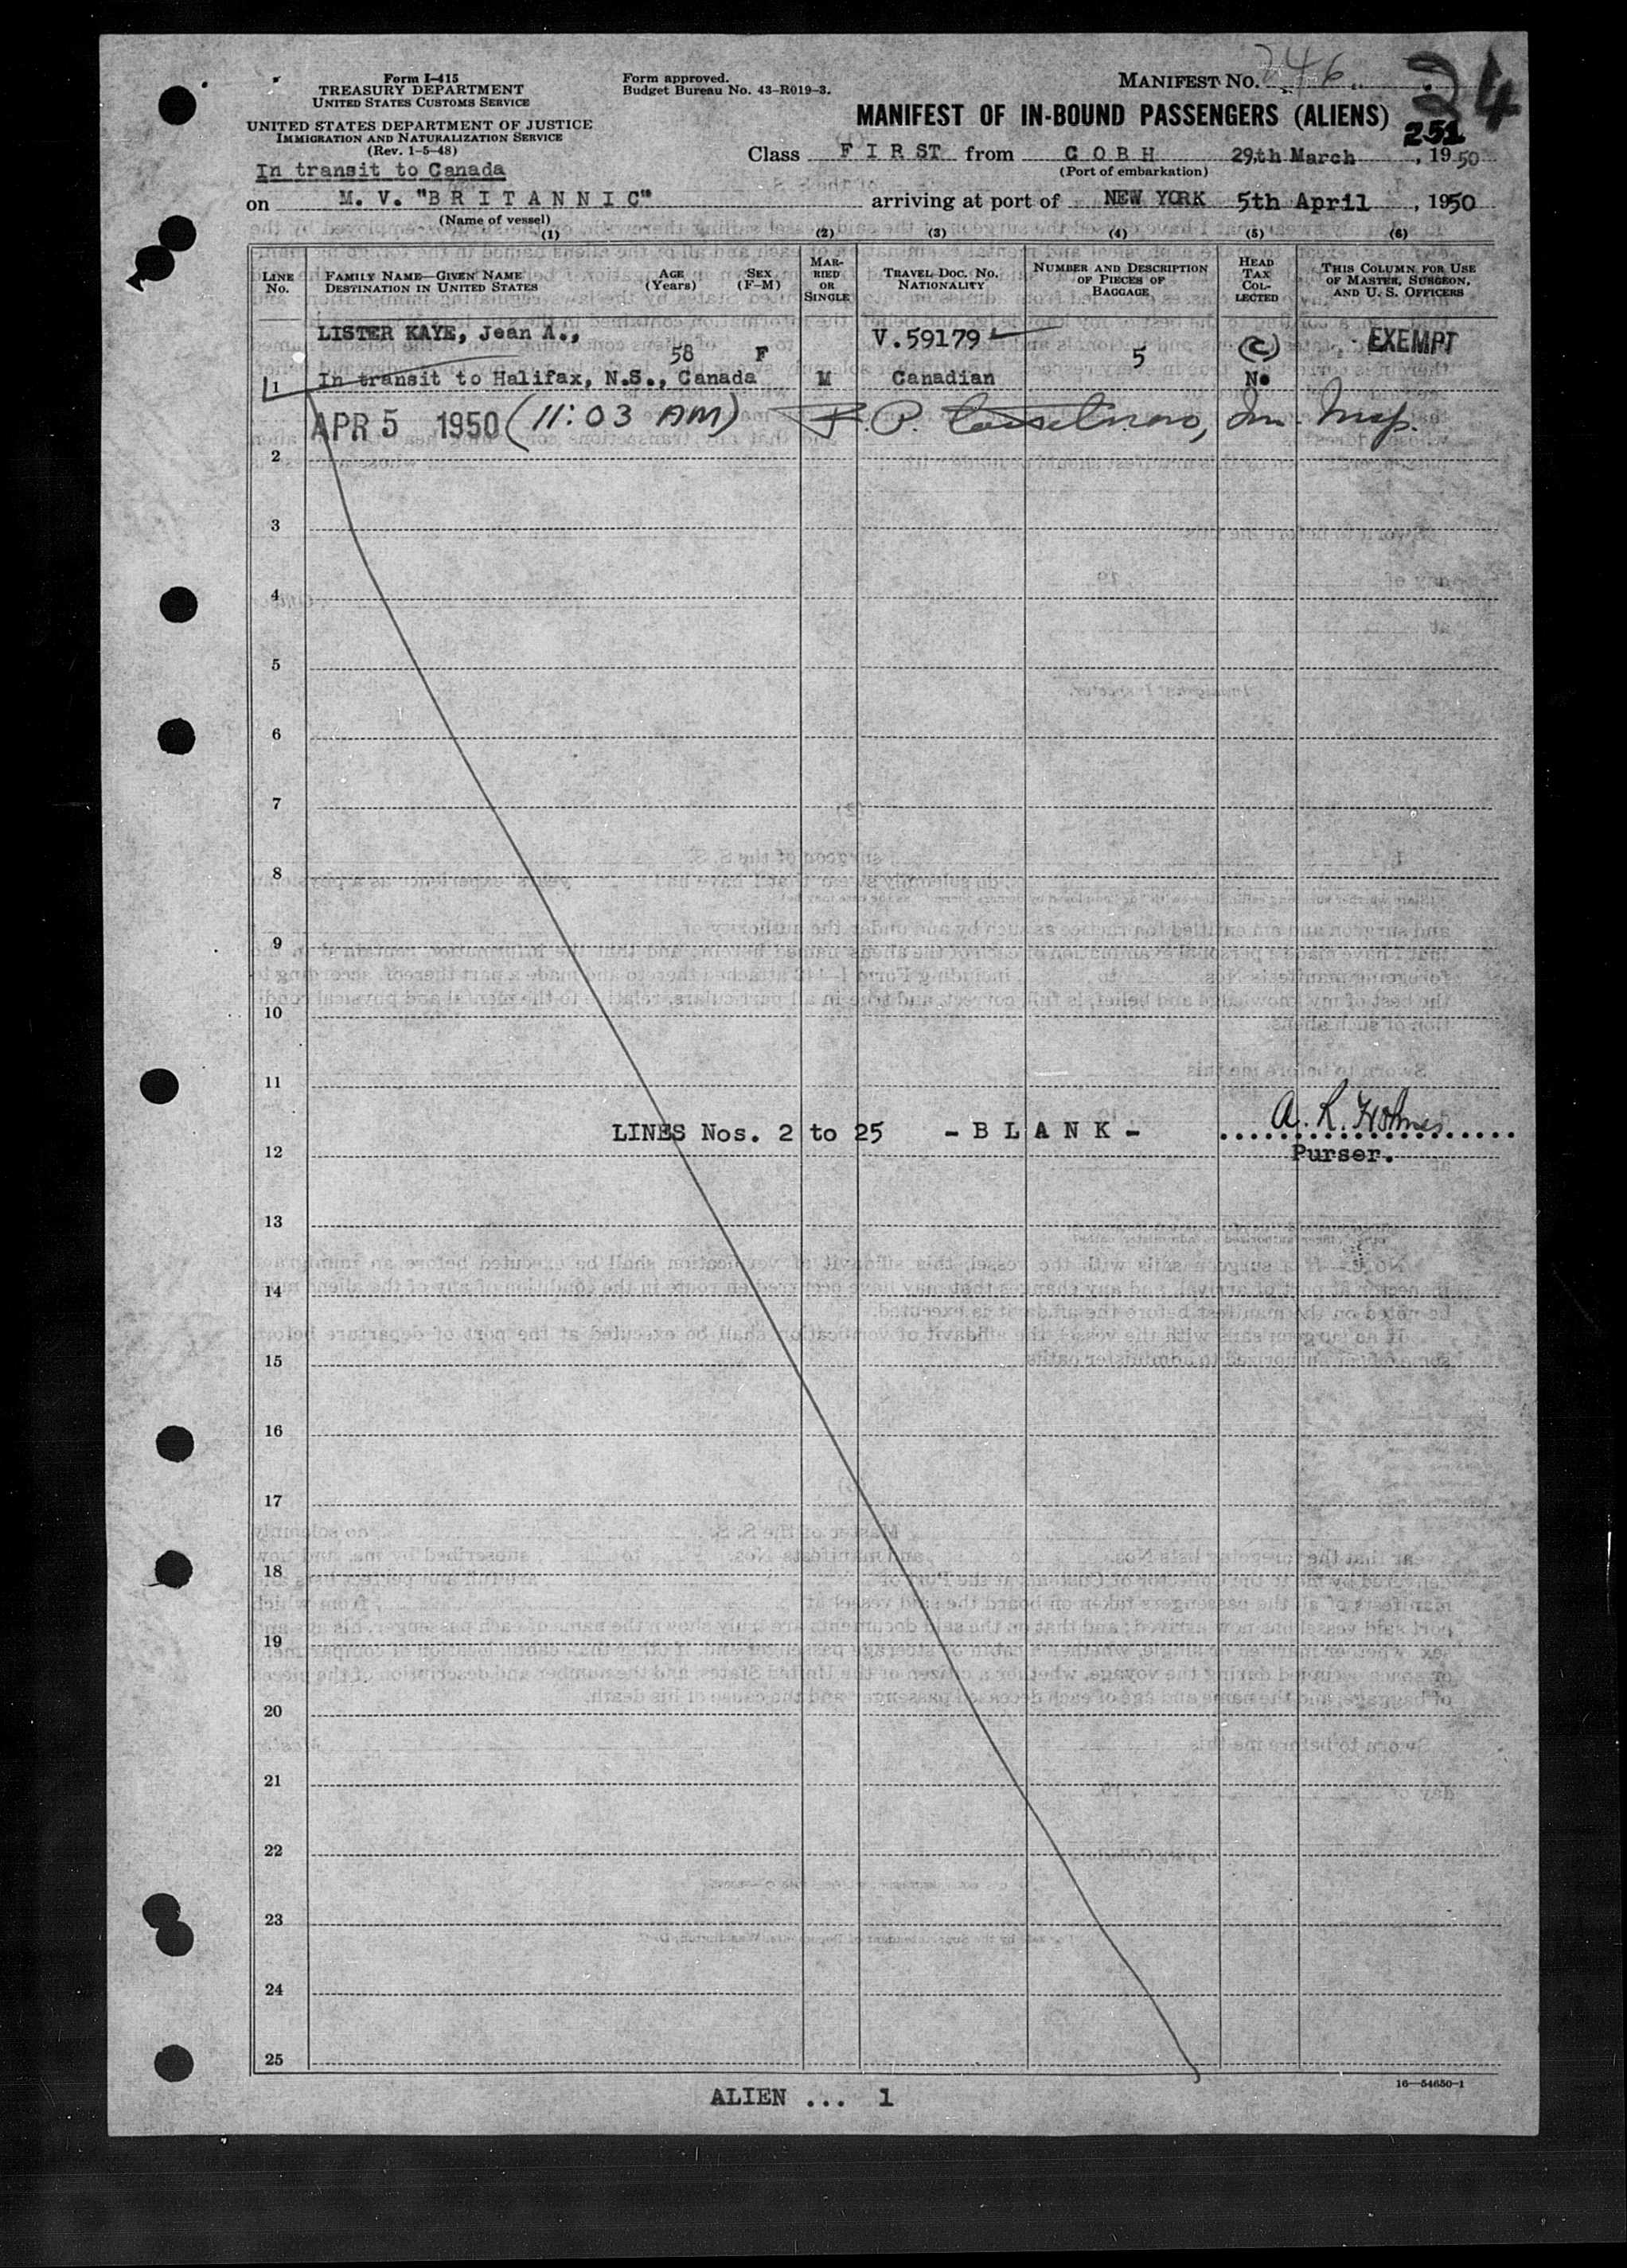 Form I-415
TREASURY DEPARTMENT
UNITED STATES CUSTOMS SERVICE
UNITED STATES DEPARTMENT OF JUSTICE
IMMIGRATION AND NATURALIZATION SERVICE
(Rev. 1-5-48)
Form approved.
Budget Bureau No. 43-R019-3.
MANIFEST NO. 246
24
MANIFEST OF IN-BOUND PASSENGERS (ALIENS)
251
Class F I R S T from C O B H 29th March, 1950
(Port of embarkation)
In transit to Canada
on M. V. "B R I T A N N I C" arriving at port of NEW YORK 5th April, 1950
(Name of vessel)
(1) (2) (3) (4) (5) (6)
LINE No.
FAMILY NAME—GIVEN NAME DESTINATION IN UNITED STATES
AGE (Years)
SEX (F-M)
MARRIED OR SINGLE
TRAVEL DOC. NO. NATIONALITY
NUMBER AND DESCRIPTION OF PIECES OF BAGGAGE
HEAD TAX COLLECTED
THIS COLUMN FOR USE OF MASTER, SURGEON, AND U. S. OFFICERS
LISTER KAYE, Jean A., V.59179 EXEMPT
58 F 5 (C)
1 In transit to Halifax, N.S., Canada M Canadian No
APR 5 1950 (11:03 AM) Im. Insp.
2
3
4
5
6
7
8
9
10
11
LINES Nos. 2 to 25 - B L A N K - A. R. Holmes
12 Purser.
13
14
15
16
17
18
19
20
21
22
23
24
25
16—54650-1
ALIEN ... 1